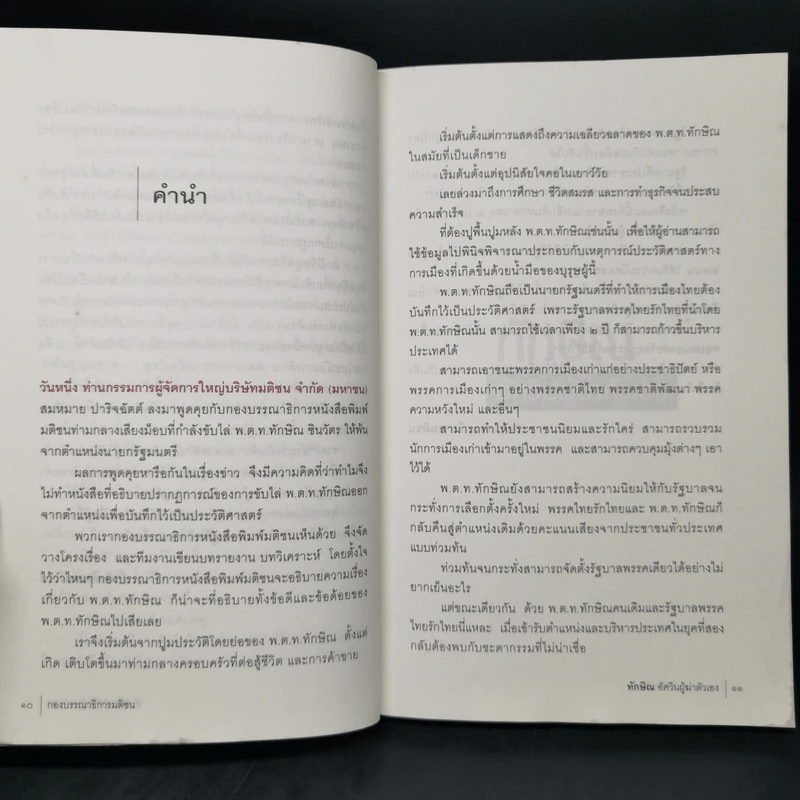 คำนำ
วันหนึ่ง ท่านกรรมการผู้จัดการใหญ่บริษัทมติชน จำกัด (มหาชน)
สมหมาย ปาริจฉัตต์ ลงมาพูดคุยกับกองบรรณาธิการหนังสือพิมพ์
มติชนท่ามกลางเสียงม็อบที่กำลังขับไล่ พ.ต.ท.ทักษิณ ชินวัตร ให้พ้น
จากตำแหน่งนายกรัฐมนตรี
ผลการพูดคุยหารือกันในเรื่องข่าว จึงมีความคิดที่ว่าทำไมจึง
ไม่ทำหนังสือที่อธิบายปรากฏการณ์ของการขับไล่ พ.ต.ท.ทักษิณออก
จากตำแหน่งเพื่อบันทึกไว้เป็นประวัติศาสตร์
พวกเรากองบรรณาธิการหนังสือพิมพ์มติชนเห็นด้วย จึงจัด
วางโครงเรื่อง และทีมงานเขียนบทรายงาน บทวิเคราะห์ โดยตั้งใจ
ไว้ว่าไหนๆ กองบรรณาธิการหนังสือพิมพ์มติชนจะอธิบายความเรื่อง
เกี่ยวกับ พ.ต.ท.ทักษิณ ก็น่าจะที่อธิบายทั้งข้อดีและข้อด้อยของ
พ.ต.ท.ทักษิณไปเสียเลย
เราจึงเริ่มต้นจากปูมประวัติโดยย่อของ พ.ต.ท.ทักษิณ ตั้งแต่
เกิด เติบโตขึ้นมาท่ามกลางครอบครัวที่ต่อสู้ชีวิต และการค้าขาย
๑๐ กองบรรณาธิการมติชน
เริ่มต้นตั้งแต่การแสดงถึงความเฉลียวฉลาดของ พ.ต.ท.ทักษิณ
ในสมัยที่เป็นเด็กชาย
เริ่มต้นตั้งแต่อุปนิสัยใจคอในเยาว์วัย
เลยล่วงมาถึงการศึกษา ชีวิตสมรส และการทำธุรกิจจนประสบ
ความสำเร็จ
ที่ต้องปูพื้นปูมหลัง พ.ต.ท.ทักษิณเช่นนั้น เพื่อให้ผู้อ่านสามารถ
ใช้ข้อมูลไปพินิจพิจารณาประกอบกับเหตุการณ์ประวัติศาสตร์ทาง
การเมืองที่เกิดขึ้นด้วยน้ำมือของบุรุษผู้นี้
พ.ต.ท.ทักษิณถือเป็นนายกรัฐมนตรีที่ทำให้การเมืองไทยต้อง
บันทึกไว้เป็นประวัติศาสตร์ เพราะรัฐบาลพรรคไทยรักไทยที่นำโดย
พ.ต.ท.ทักษิณนั้น สามารถใช้เวลาเพียง ๒ ปี ก็สามารถก้าวขึ้นบริหาร
ประเทศได้
สามารถเอาชนะพรรคการเมืองเก่าแก่อย่างประชาธิปัตย์ หรือ
พรรคการเมืองเก่าๆ อย่างพรรคชาติไทย พรรคชาติพัฒนา พรรค
ความหวังใหม่ และอื่นๆ
สามารถทำให้ประชาชนนิยมและรักใคร่ สามารถรวบรวม
นักการเมืองเก่าเข้ามาอยู่ในพรรค และสามารถควบคุมมุ้งต่างๆ เอา
ไว้ได้
พ.ต.ท.ทักษิณยังสามารถสร้างความนิยมให้กับรัฐบาลจน
กระทั่งการเลือกตั้งครั้งใหม่ พรรคไทยรักไทยและ พ.ต.ท.ทักษิณก็
กลับคืนสู่ตำแหน่งเดิมด้วยคะแนนเสียงจากประชาชนทั่วประเทศ
แบบท่วมท้น
ท่วมท้นจนกระทั่งสามารถจัดตั้งรัฐบาลพรรคเดียวได้อย่างไม่
ยากเย็นอะไร
แต่ขณะเดียวกัน ด้วย พ.ต.ท.ทักษิณคนเดิมและรัฐบาลพรรค
ไทยรักไทยนี่แหละ เมื่อเข้ารับตำแหน่งและบริหารประเทศในยุคที่สอง
กลับต้องพบกับชะตากรรมที่ไม่น่าเชื่อ
ทักษิณ อัศวินผู้ฆ่าตัวเอง ๑๑